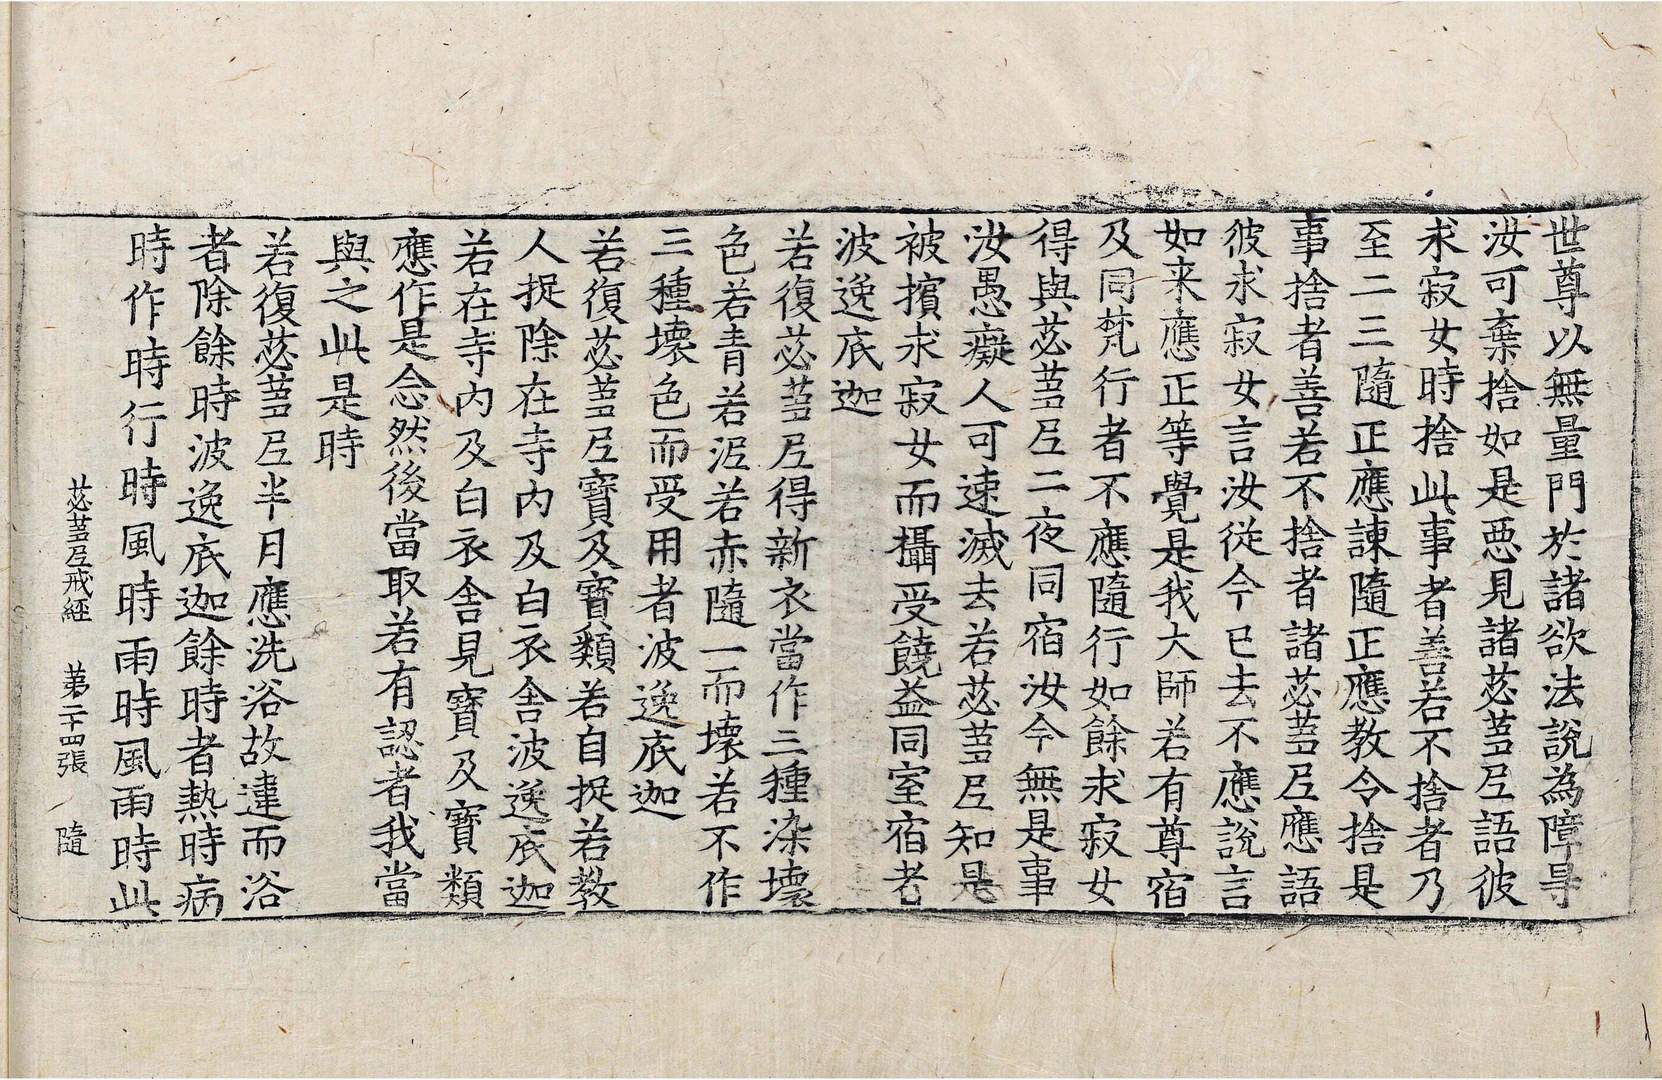 世尊以無量門於諸欲法說為障㝵
汝可棄捨如是惡見諸苾蒭尼語彼
求寂女時捨此事者善若不捨者乃
至二三隨正應諫隨正應教令捨是
事捨者善若不捨者諸苾蒭尼應語
彼求寂女言汝從今已去不應說言
如来應正等覺是我大師若有尊宿
及同梵行者不應隨行如餘求寂女
得與苾蒭尼二夜同宿汝今無是事
汝愚癡人可速滅去若苾蒭尼知是
被擯求寂女而攝受饒益同室宿者
波逸底迦
若復苾蒭尼得新衣當作三種染壞
色若青若泥若赤隨一而壞若不作
三種壞色而受用者波逸底迦
若復苾蒭尼寶及寶類若自捉若教
人捉除在寺內及白衣舍波逸底迦
若在寺內及白衣舍見寶及寶類
應作是念然後當取若有認者我當
與之此是時
若復苾蒭尼半月應洗浴故違而浴
者除餘時波逸底迦餘時者熱時病
時作時行時風時雨時風雨時此
苾蒭尼戒經 第二十四張 隨